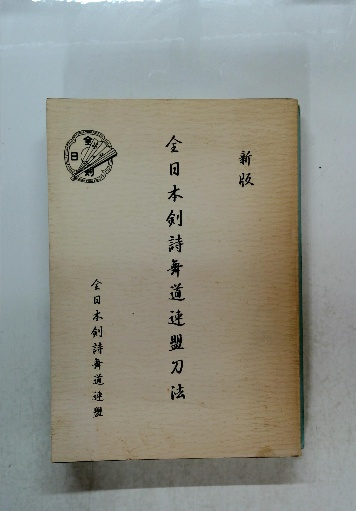 新版
全日本剣詩舞道連盟刀法
全日本剣詩舞道連盟
全
日
剣